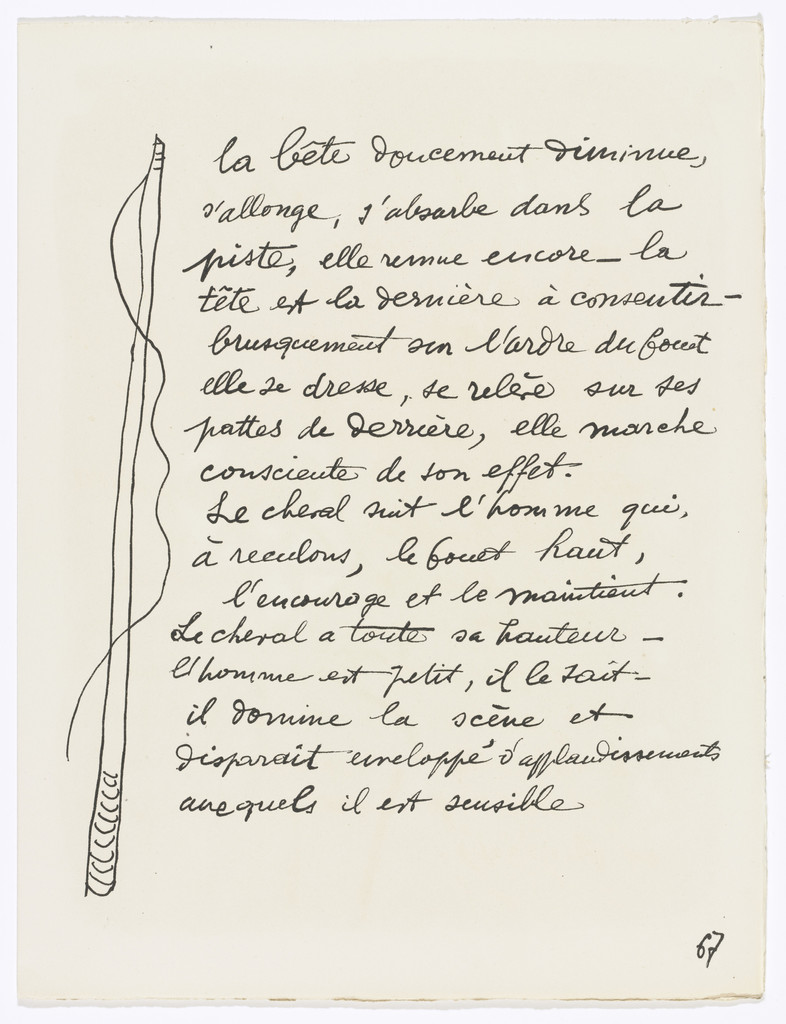 la bête doucement diminue,
s'allonge, s'absorbe dans la
piste, elle remue encore – la
tête est la dernière à consentir –
brusquement sur l'ordre du fouet
elle se dresse, se relève sur ses
pattes de derrière, elle marche
consciente de son effet.
Le cheval suit l'homme qui,
à reculons, le fouet haut,
l'encourage et le maintient.
Le cheval a toute sa hauteur –
l'homme est petit, il le sait –
il domine la scène et
disparaît enveloppé d'applaudissements
auxquels il est sensible
67